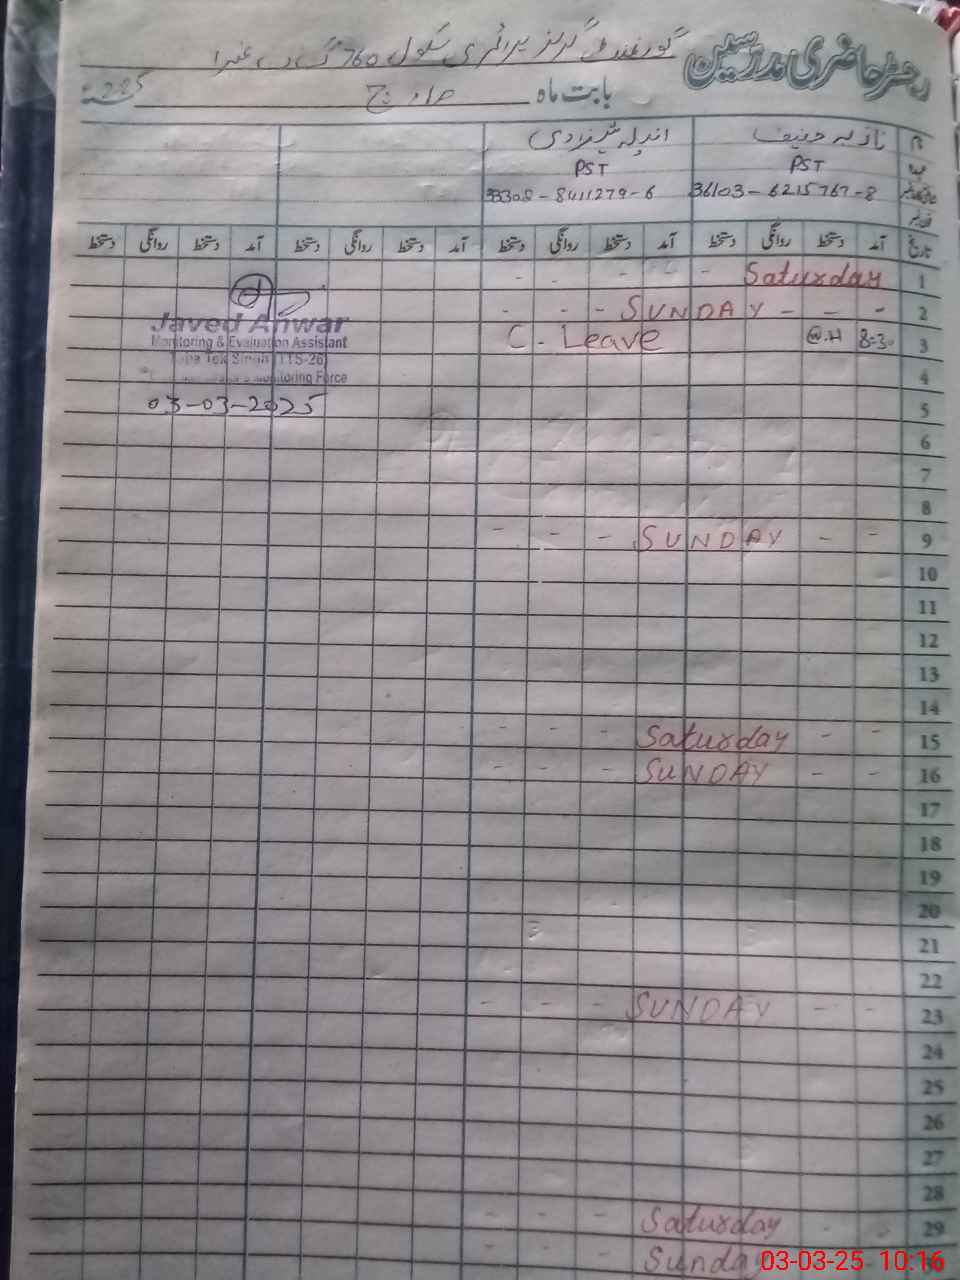 رجسٹر حاضری مدرسین گورنمنٹ گرلز پرائمری سکول 760 گ ب
بابت ماہ مارچ 2025
نازیہ حنیف
PST PST
36103-6215767-8 33308-8411279-6
تاریخ آمد دستخط روانگی دستخط آمد دستخط روانگی دستخط آمد دستخط روانگی دستخط آمد دستخط روانگی دستخط
1 Saturday - - - -
2 - - - SUNDAY - - -
3 8:30 C. Leave
Javed Anwar
Monitoring & Evaluation Assistant
Tek Singh (TTS-26)
Monitoring Force
03-03-2025
4
5
6
7
8
9 - - - SUNDAY - -
10
11
12
13
14
15 - - - Saturday - -
16 - - - SUNDAY - -
17
18
19
20
21
22
23 - - - SUNDAY - -
24
25
26
27
28
29 - - - Saturday - -
- - - Sunday
03-03-25 10:16